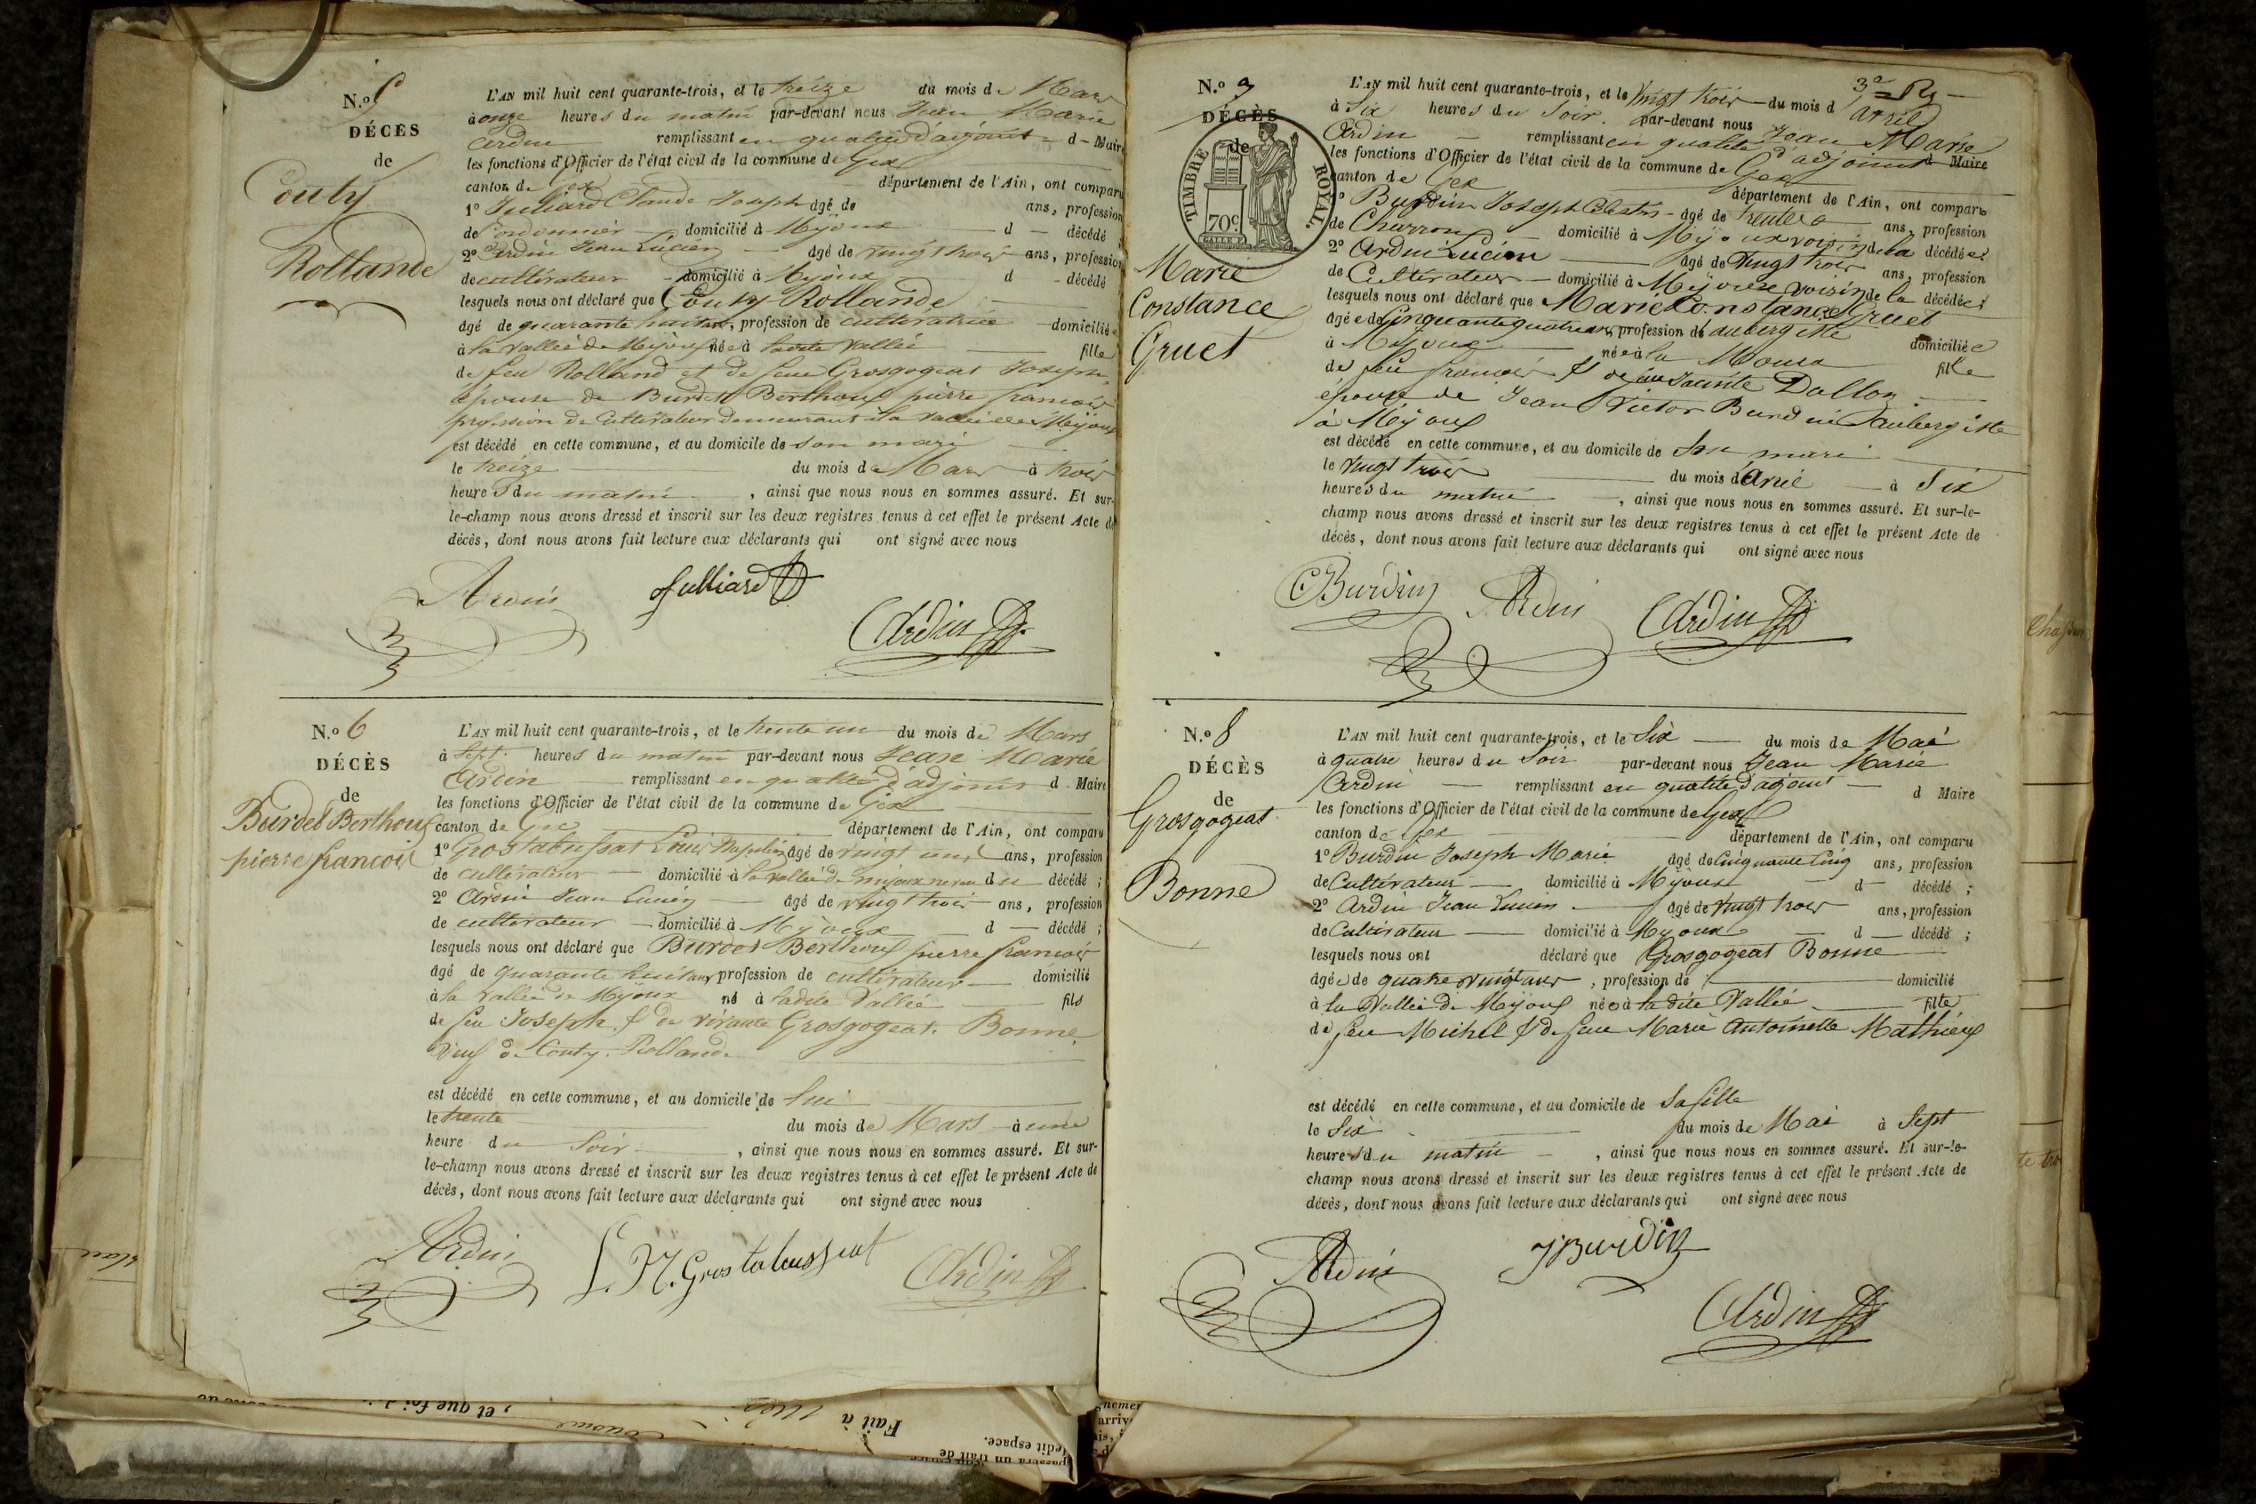 N.º 5
DÉCÈS
de
Couty
Rollande
L'AN mil huit cent quarante-trois, et le treize du mois de Mars
à onze heures du matin par-devant nous Jean Marie
Ardin remplissant en qualité d'adjoint d - Maire
les fonctions d'Officier de l'état civil de la commune de Gex
canton de Gex département de l'Ain, ont comparu
1º Julliard Claude Joseph âgé de ans, profession
de Cordonnier domicilié à Mijoux d - décédé ;
2º Ardin Jean Lucien âgé de vingt trois ans, profession
de cultivateur domicilié à Mijoux d - décédé
lesquels nous ont déclaré que Couty Rollande
âgé de quarante huit ans, profession de cultivatrice domiciliée
à la vallée de Mijoux née à la dite vallée fille
de feu Rolland et de feue Grosgogeat Josephe,
épouse de Burdet Berthoux pierre francois
profession de Cultivateur demeurant à la vallée de Mijoux
est décédé en cette commune, et au domicile de son mari
le treize du mois de Mars à trois
heures du matin , ainsi que nous nous en sommes assuré. Et sur-
le-champ nous avons dressé et inscrit sur les deux registres tenus à cet effet le présent Acte de
décès, dont nous avons fait lecture aux déclarants qui ont signé avec nous
Ardin Julliard
Ardin
N.º 6
DÉCÈS
de
Burdet Berthoux
pierre francois
L'AN mil huit cent quarante-trois, et le trente un du mois de Mars
à sept heures du matin par-devant nous Jean Marie
Ardin remplissant en qualité d'adjoint d Maire
les fonctions d'Officier de l'état civil de la commune de Gex
canton de Gex département de l'Ain, ont comparu
1º Grostabussat Louis Napoléon âgé de vingt un ans, profession
de cultivateur domicilié à la vallée de mijoux neveu du décédé ;
2º Ardin Jean Lucien âgé de vingt trois ans, profession
de cultivateur domicilié à Mijoux d - décédé ;
lesquels nous ont déclaré que Burdet Berthoux pierre francois
âgé de quarante huit ans profession de cultivateur domicilié
à la vallée de Mijoux né à ladite Vallée fils
de feu Joseph & de vivante Grosgogeat Bonne,
Veuf de Couty Rollande
est décédé en cette commune, et au domicile de lui
le trente du mois de Mars à une
heure du soir , ainsi que nous nous en sommes assuré. Et sur-
le-champ nous avons dressé et inscrit sur les deux registres tenus à cet effet le présent Acte de
décès, dont nous avons fait lecture aux déclarants qui ont signé avec nous
Ardin L. N. Grostabussiat Ardin
3e
N.º 7
DÉCÈS
de
TIMBRE ROYAL
70 c.
Marie
Constance
Gruet
L'AN mil huit cent quarante-trois, et le vingt trois du mois d'avril
à Six heures du Soir par-devant nous Jean Marie
Ardin remplissant en qualité d'adjoint d Maire
les fonctions d'Officier de l'état civil de la commune de Gex
canton de Gex département de l'Ain, ont comparu
1º Burdin Joseph Célestin âgé de trente ans, profession
de Charron domicilié à Mijoux voisin de la décédée ;
2º Ardin Lucien âgé de vingt trois ans, profession
de Cultivateur domicilié à Mijoux voisin de la décédée ;
lesquels nous ont déclaré que Marie Constance Gruet
âgée de Cinquante quatre ans, profession d'aubergiste domiciliée
à Mijoux née à la Moura fille
de feu francois & de feu Jacinte Dalloz
épouse de Jean Victor Burdin aubergiste
à Mijoux
est décédé en cette commune, et au domicile de son mari
le vingt trois du mois d'avril à Six
heures du matin , ainsi que nous nous en sommes assuré. Et sur-le-
champ nous avons dressé et inscrit sur les deux registres tenus à cet effet le présent Acte de
décès, dont nous avons fait lecture aux déclarants qui ont signé avec nous
C Burdin Ardin Ardin
N.º 8
DÉCÈS
de
Grosgogeat
Bonne
L'AN mil huit cent quarante-trois, et le Six du mois de Mai
à quatre heures du Soir par-devant nous Jean Marie
Ardin remplissant en qualité d'adjoint d Maire
les fonctions d'Officier de l'état civil de la commune de Gex
canton de Gex département de l'Ain, ont comparu
1º Burdin Joseph Marie âgé de Cinquante Cinq ans, profession
de Cultivateur domicilié à Mijoux d - décédé ;
2º Ardin Jean Lucien âgé de vingt trois ans, profession
de Cultivateur domicilié à Mijoux d - décédé ;
lesquels nous ont déclaré que Grosgogeat Bonne
âgée de quatre vingt ans , profession de domicilié
à la Vallée de Mijoux née à la dite Vallée fille
de feu Michel & de feue Marie Antoinette Mathieux
est décédé en cette commune, et au domicile de Sa fille
le Six du mois de Mai à Sept
heures du matin , ainsi que nous nous en sommes assuré. Et sur-le-
champ nous avons dressé et inscrit sur les deux registres tenus à cet effet le présent Acte de
décès, dont nous avons fait lecture aux déclarants qui ont signé avec nous
Ardin JBurdin
Ardin
, et que foi
Fait à
ledit espace.